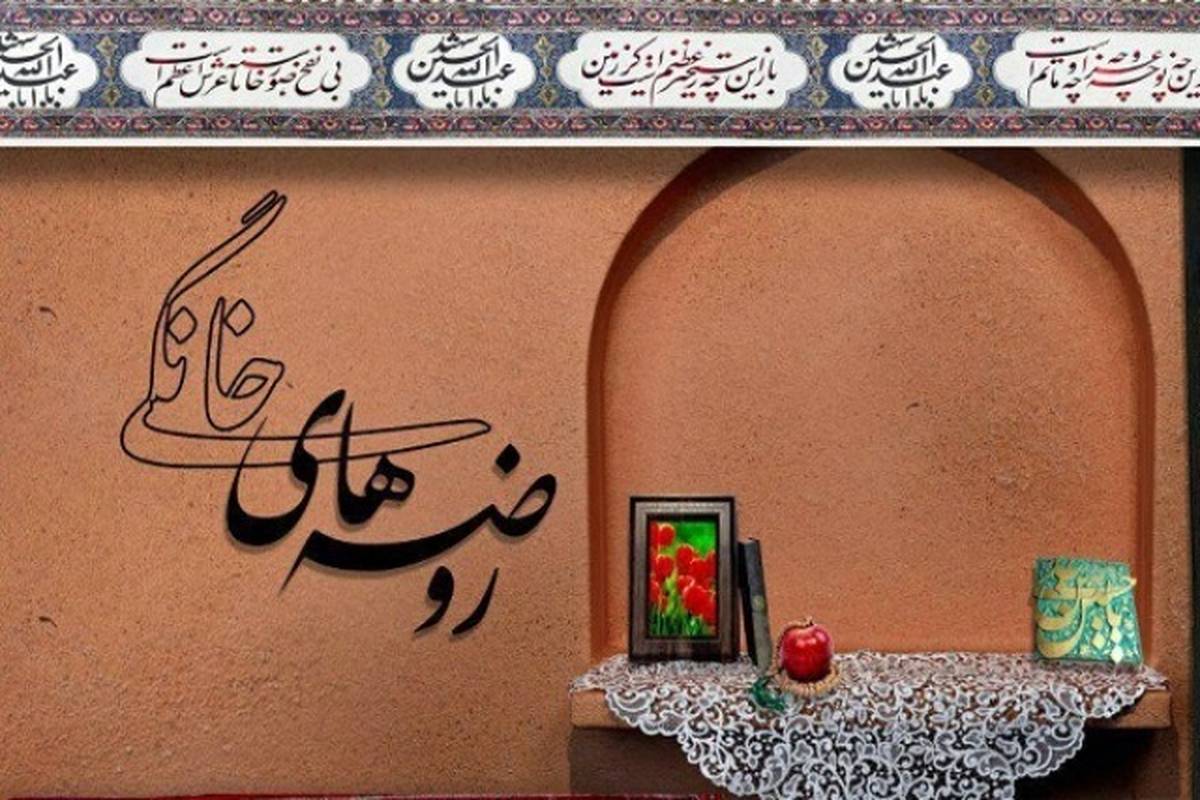 چه نوحه و چه عزا و چه ماتم است
یا ابا عبدالله الحسین
باز این چه رستخیز عظیم است کز زمین
یا ابا عبدالله الحسین
بی نفخ صور خاسته تا عرش اعظم است
یا ابا عبدالله الحسین
روضه های
خانگی
یا حسین